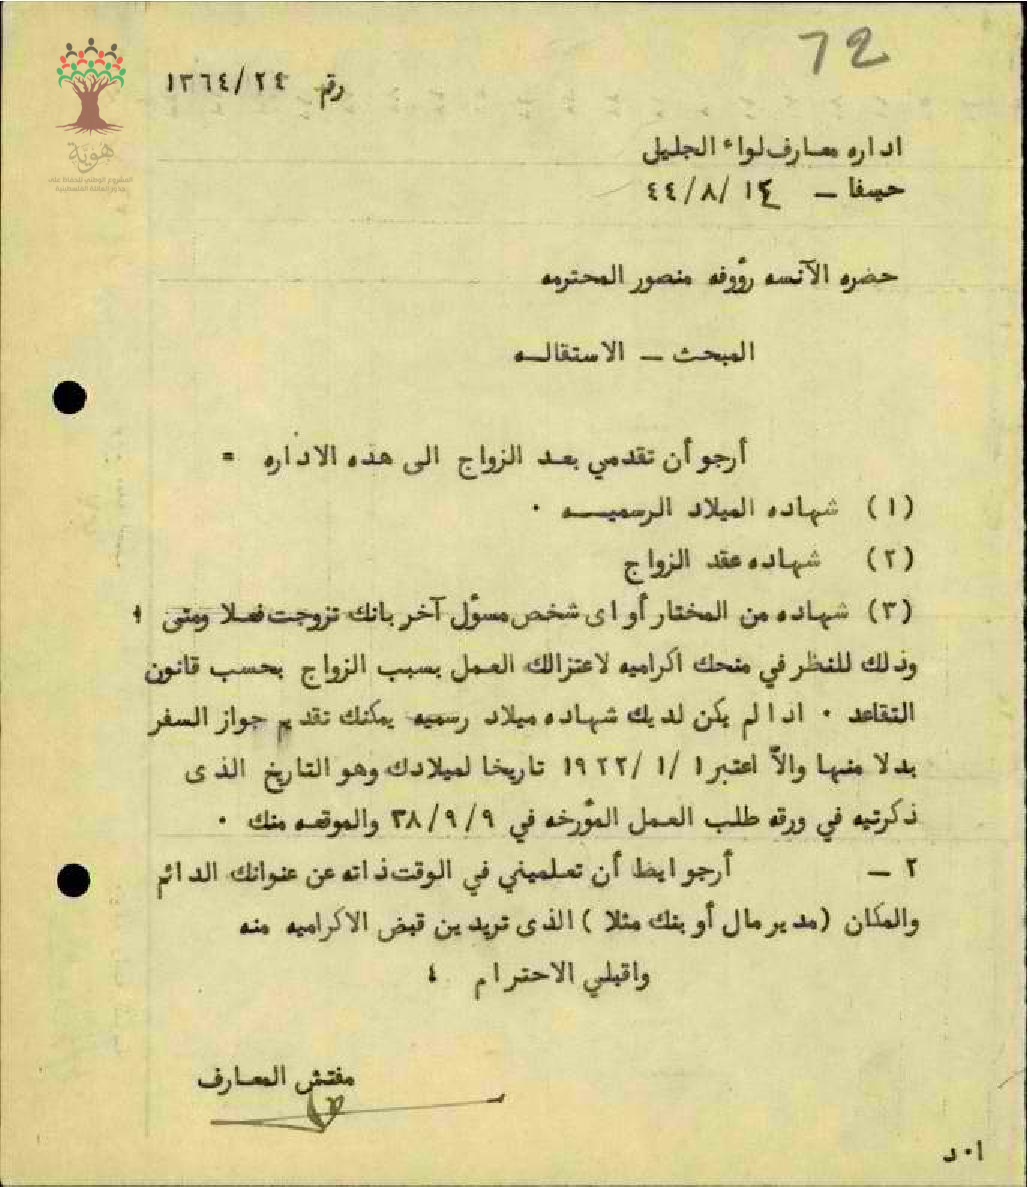 72
رقم ١٣٦٤/٢٤
هوية
المشروع الوطني للحفاظ على
جذور العائلة الفلسطينية
اداره معارف لواء الجليل
حيفا – ١٤/٨/٤٤
حضره الآنسه رؤوفه منصور المحترمه
المبحث – الاستقاله
أرجو أن تقدمي بعد الزواج الى هذه الاداره =
(١) شهاده الميلاد الرسميه ٠
(٢) شهاده عقد الزواج
(٣) شهاده من المختار أو اى شخص مسؤل آخر بانك تزوجت فعلا ومتى ؛
وذلك للنظر في منحك اكراميه لاعتزالك العمل بسبب الزواج بحسب قانون
التقاعد ٠ اذا لم يكن لديك شهاده ميلاد رسميه يمكنك تقديم جواز السفر
بدلا منها والاّ اعتبر ١/١/١٩٢٢ تاريخا لميلادك وهو التاريخ الذى
ذكرتيه في ورقه طلب العمل المؤرخه في ٣٨/٩/٩ والموقعه منك ٠
٢ – أرجو ايظا أن تعلميني في الوقت ذاته عن عنوانك الدائم
والمكان (مدير مال أو بنك مثلا) الذى تريدين قبض الاكراميه منه
واقبلي الاحترام ؛
مفتش المعارف
ا٠د